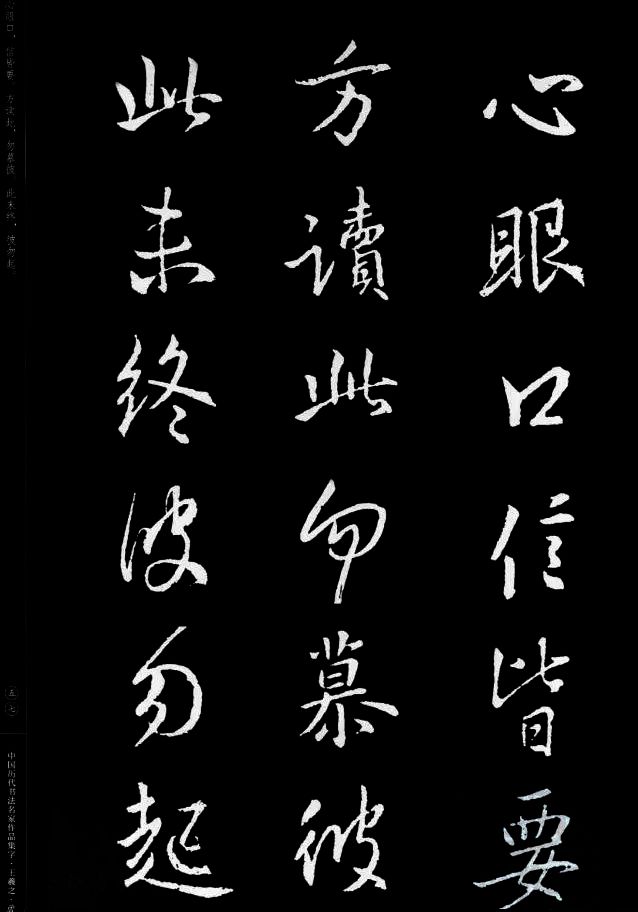 心眼口信皆要
方讀此勿慕彼
此未終彼勿起
口，信皆要　方读此，勿慕彼　此未终，彼勿起
五七
中国历代书法名家作品集字·王羲之·